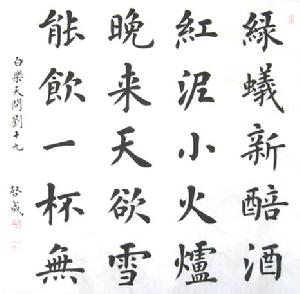 綠蟻新醅酒
紅泥小火爐
晚来天欲雪
能飲一杯無
白樂天問劉十九